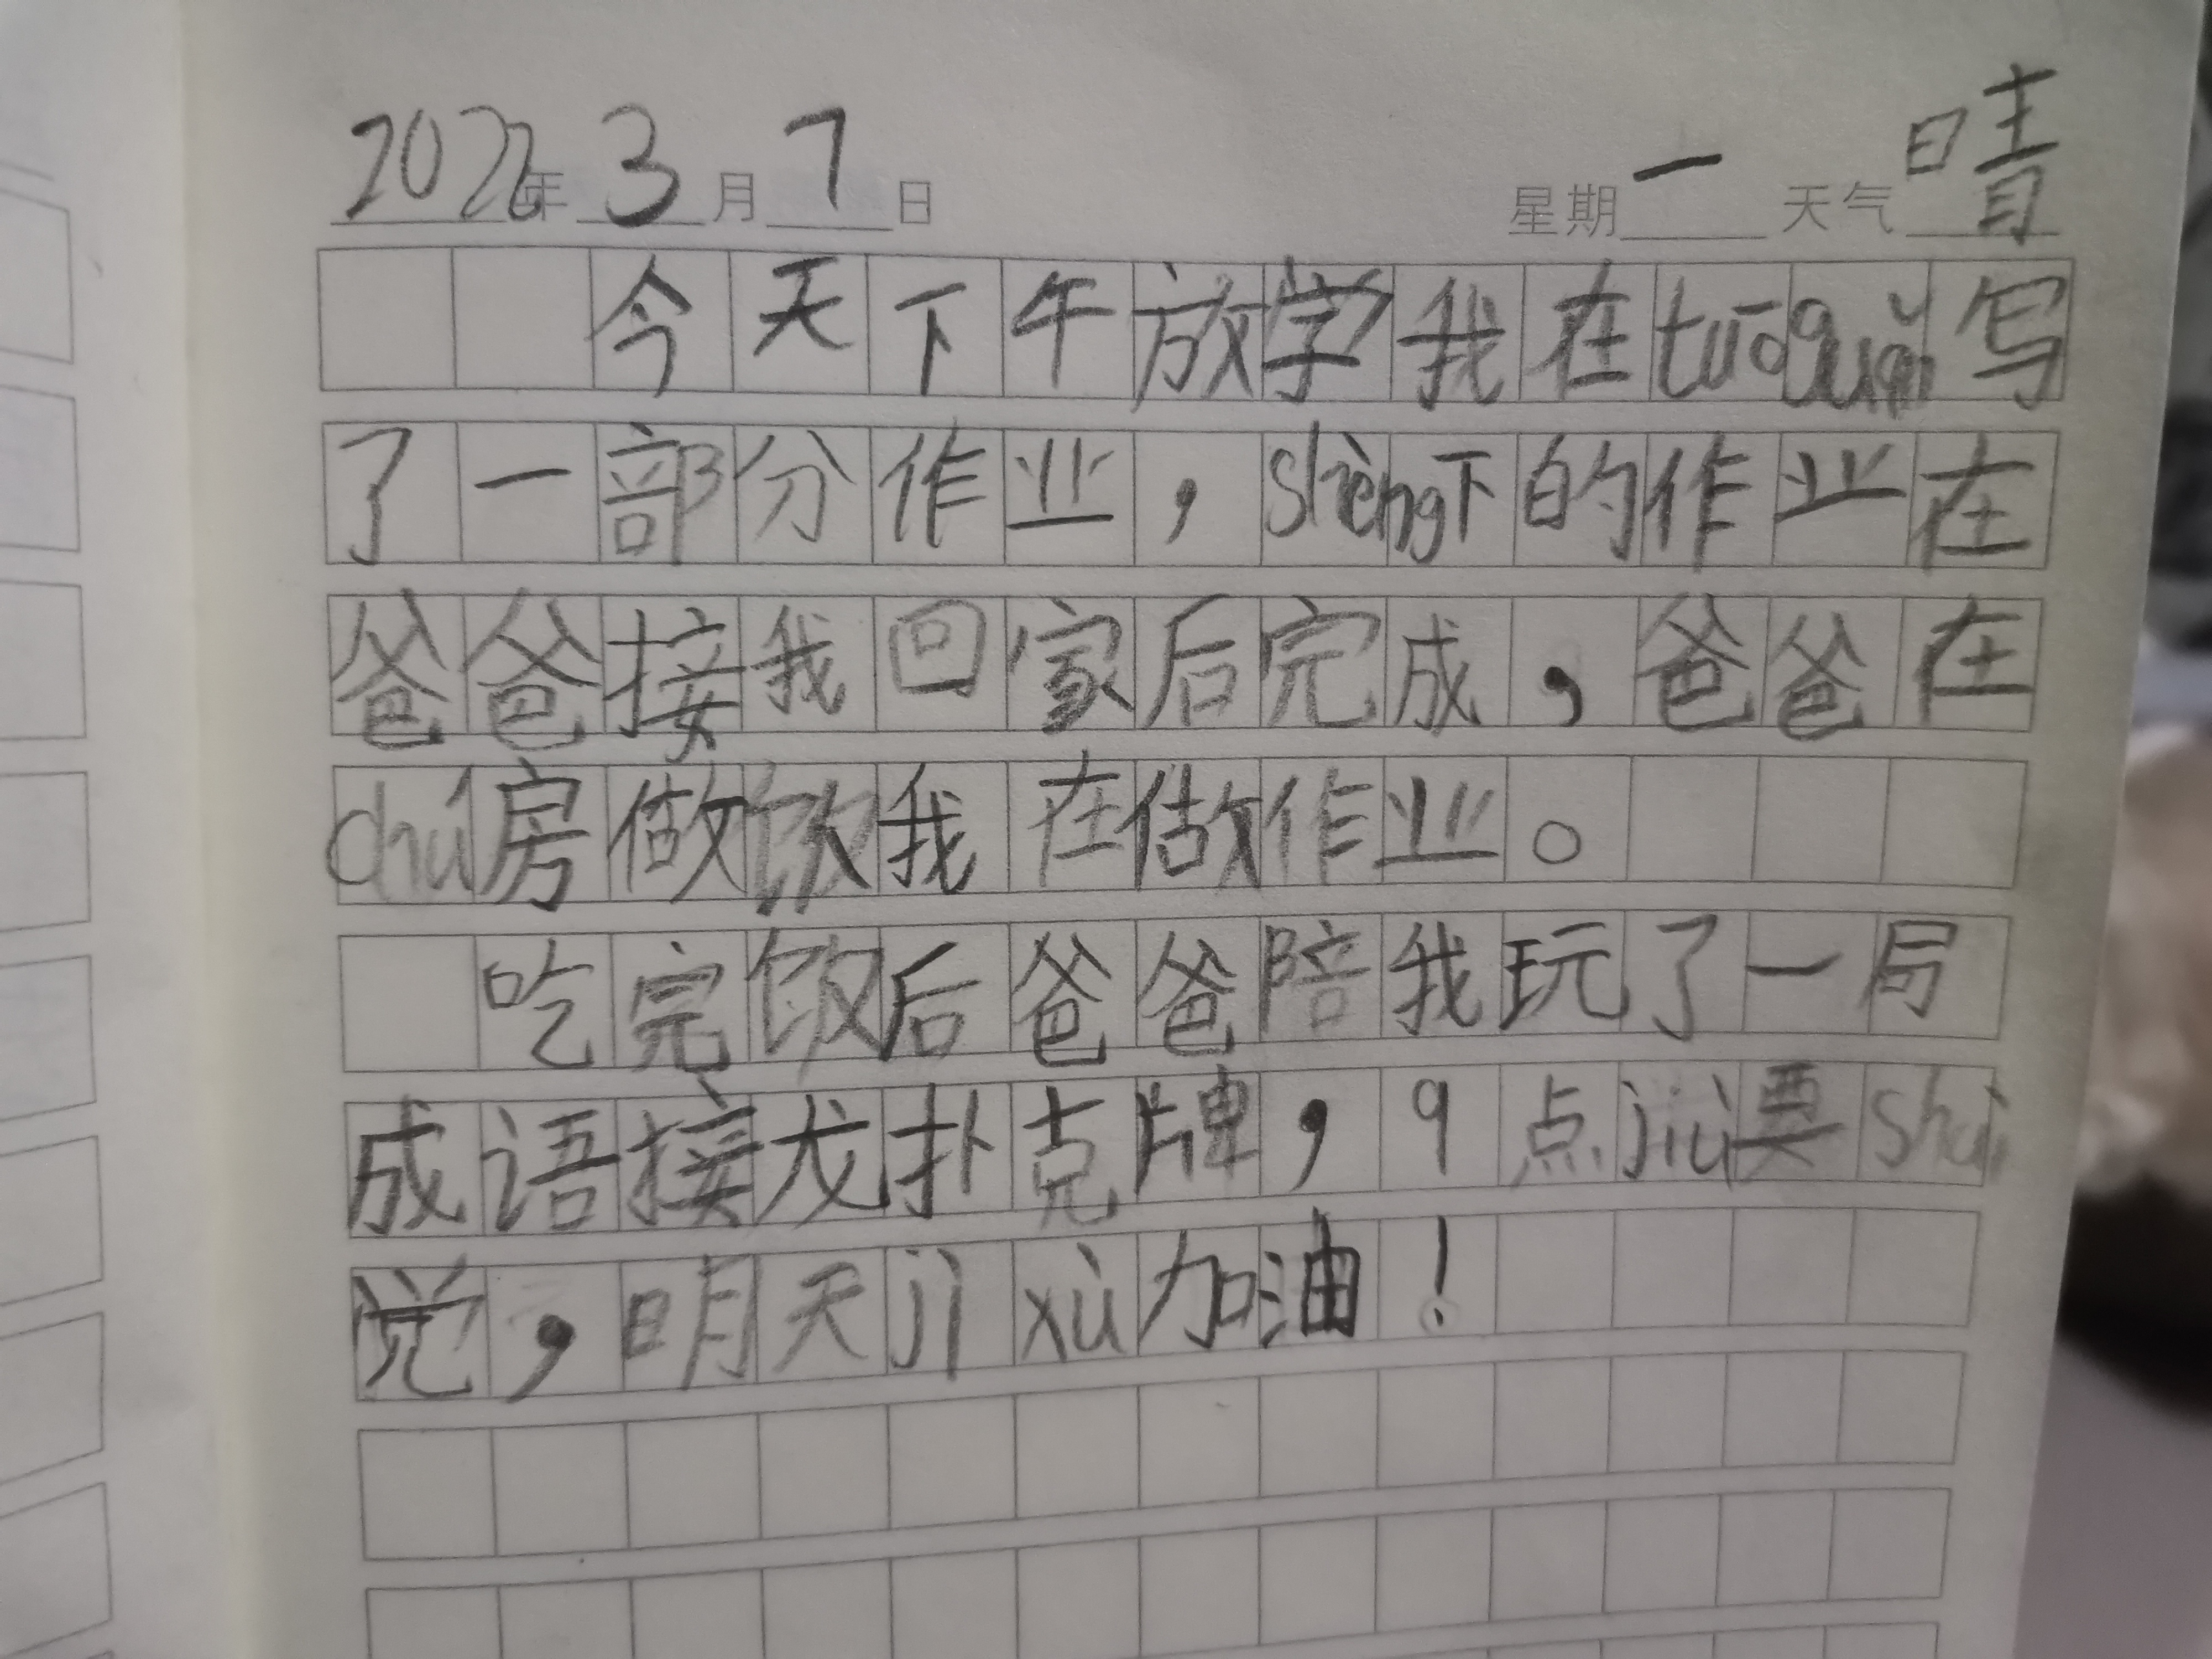 2022年 3月 7日 星期一 天气晴
今天下午放学我在tuōguǎn写
了一部分作业，shèng下的作业在
爸爸接我回家后完成，爸爸在
chú房做饭我在做作业。
吃完饭后爸爸陪我玩了一局
成语接龙扑克牌，9点jiù要shuì
觉，明天jì xù加油！